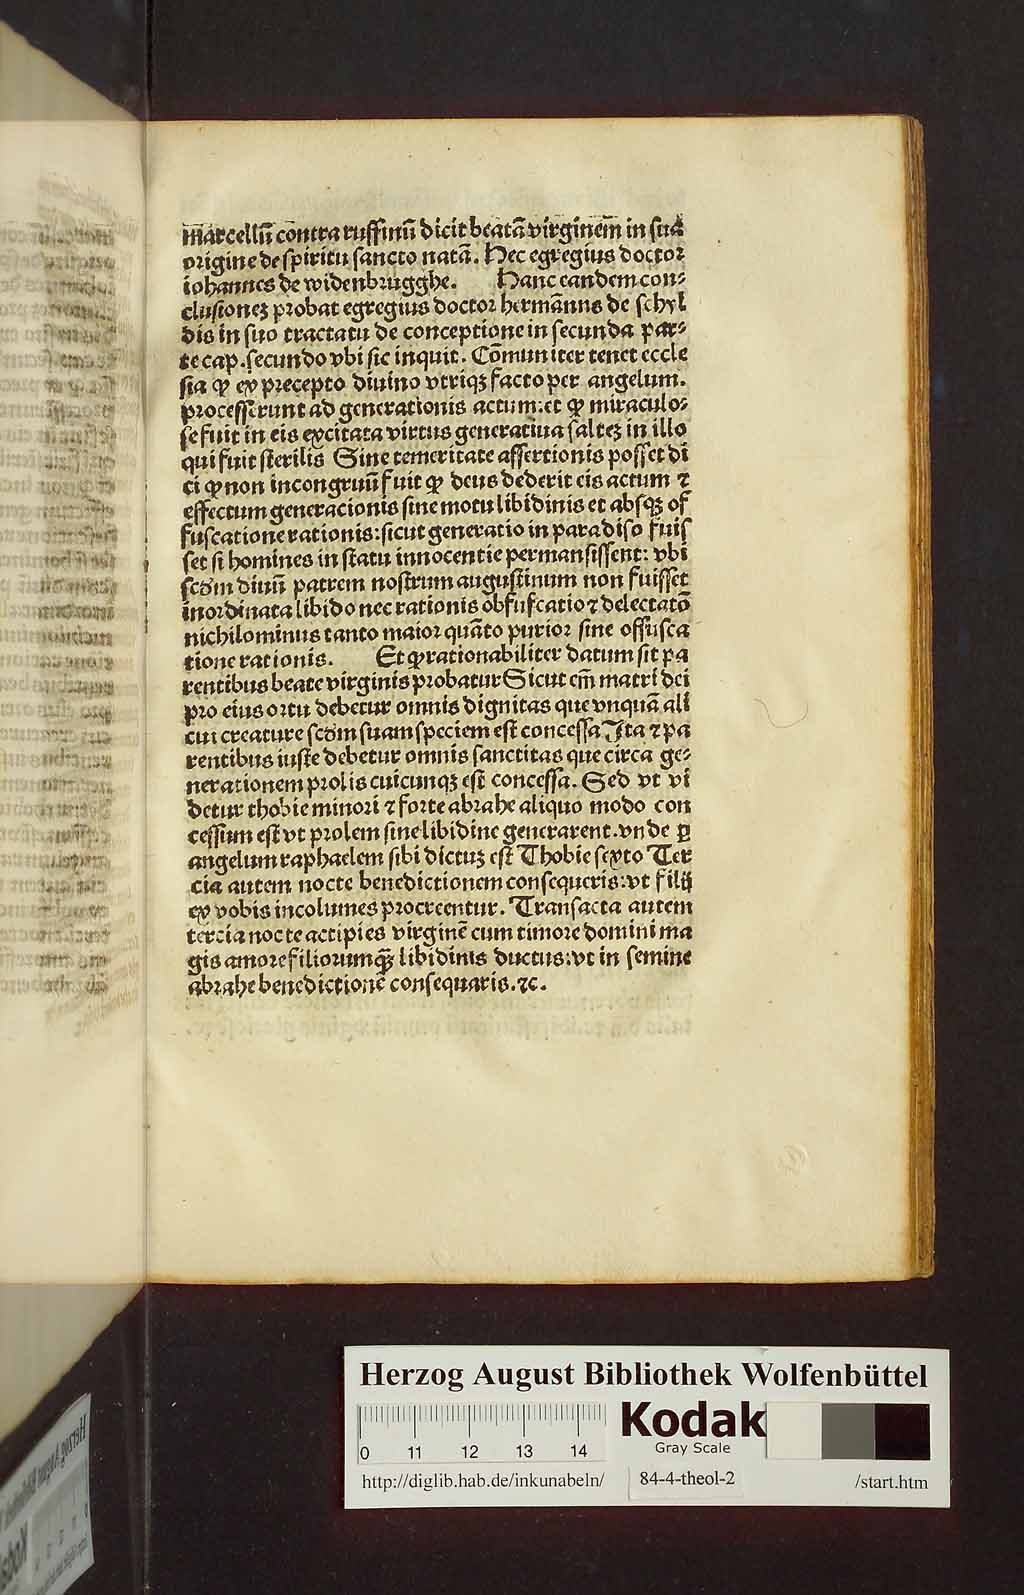 marcellū contra ruffinū dicit beatā virginem̄ in sua
origine de spiritu sancto natā. Hec egregius doctor
iohannes de widenbrugghe. Hanc eandem con⸗
clusionez probat egregius doctor hermānns de schyl
dis in suo tractatu de conceptione in secunda par⸗
te cap.secundo vbi sic inquit. Cōmuniter tenet eccle
sia ꝙ ex precepto diuino vtriqꝫ facto per angelum.
processerunt ad generationis actum:et ꝙ miraculo⸗
se fuit in eis excitata virtus generatiua saltez in illo
qui fuit sterilis Sine temeritate assertionis posset di
ci ꝙ non incongruū fuit ꝙ deus dederit eis actum ⁊
effectum generacionis sine motu libidinis et absqꝫ of
fuscatione rationis:sicut generatio in paradiso fuis
set si homines in statu innocentie permansissent: vbi
scd̄m diuū patrem nostrum augustinum non fuisset
inordinata libido nec rationis obfuscatio ⁊ delectatō
nichilominus tanto maior quāto purior sine offusca
tione rationis. Et ꝙ rationabiliter datum sit pa
rentibus beate virginis probatur Sicut em̄ matri dei
pro eius ortu debetur omnis dignitas que vnquā ali
cui creature scd̄m suam speciem est concessa Ita ⁊ pa
rentibus iuste debetur omnis sanctitas que circa ge⸗
nerationem prolis cuicunqꝫ est concessa. Sed vt vi
detur thobie minori ⁊ forte abrahe aliquo modo con
cessum est vt prolem sine libidine generarent. vnde ꝑ
angelum raphaelem sibi dictuꝫ est Thobie sexto Ter
cia autem nocte benedictionem consequeris:vt filij
ex vobis incolumes procreentur. Transacta autem
tercia nocte accipies virginē cum timore domini ma
gis amore filiorum qꝫ̄ libidinis ductus:vt in semine
abrahe benedictionē consequaris.⁊c.
Herzog August Bibliothek Wolfenbüttel
0 11 12 13 14
Kodak
Gray Scale
http://diglib.hab.de/inkunabeln/ 84-4-theol-2 /start.htm